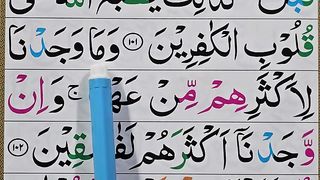 قُلُوبِ الْكٰفِرِيْنَ ﴿١٠١﴾ وَمَا وَجَدْنَا
لِاَكْثَرِهِمْ مِّنْ عَهْدٍ ۚ وَاِنْ
وَّجَدْنَاۤ اَكْثَرَهُمْ لَفٰسِقِيْنَ ﴿١٠٢﴾